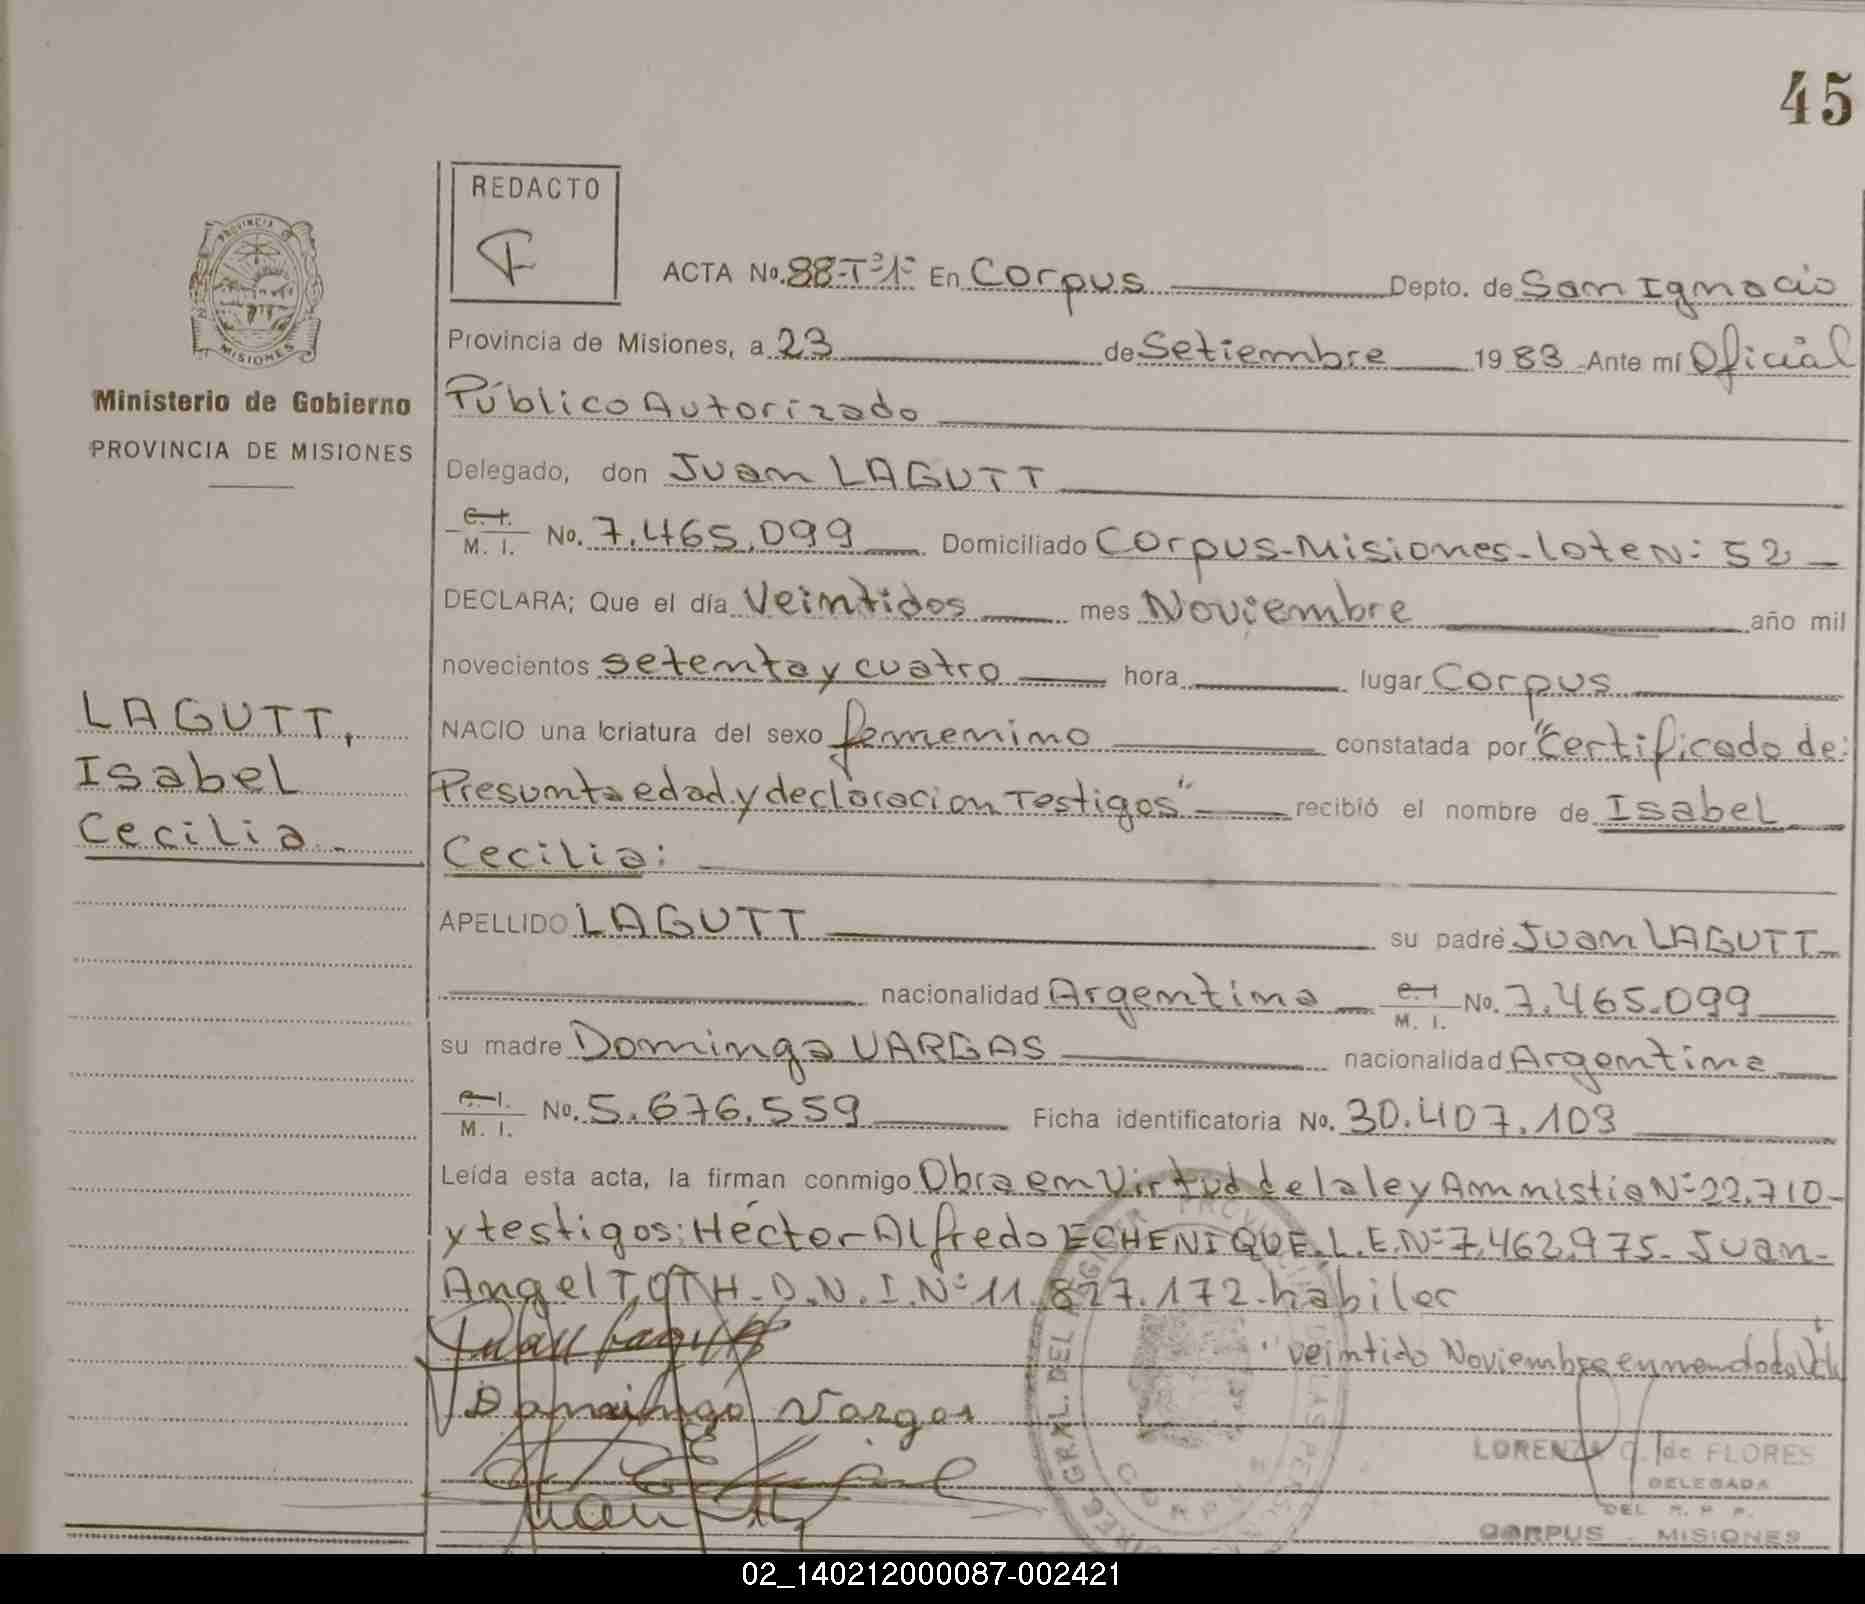 45
REDACTO
PROVINCIA DE
MISIONES
Ministerio de Gobierno
PROVINCIA DE MISIONES
LAGUTT,
Isabel
Cecilia.-
ACTA No. 88-Tº1º En Corpus Depto. de San Ignacio
Provincia de Misiones, a 23 de Setiembre 1983 Ante mí Oficial
Público Autorizado
Delegado, don Juan LAGUTT
C. I. M. I. No. 7.465.099 Domiciliado Corpus-Misiones-lote Nº 52
DECLARA; Que el día Veintidos mes Noviembre año mil
novecientos setenta y cuatro hora lugar Corpus
NACIO una criatura del sexo femenino constatada por "Certificado de:
Presunta edad y declaracion Testigos" recibió el nombre de Isabel
Cecilia:
APELLIDO LAGUTT su padre Juan LAGUTT
nacionalidad Argentina C. I. M. I. No. 7.465.099
su madre Dominga VARGAS nacionalidad Argentina
C. I. M. I. No. 5.676.559 Ficha identificatoria No. 30.407.103
Leída esta acta, la firman conmigo Obra en Virtud de la ley Amnistia Nº 22.710-
y testigos: Héctor Alfredo ECHENIQUE. L.E.Nº 7.462.975- Juan-
Angel TOTH-D.N.I.Nº 11.827.172-habiles
Juan Lagutt
"veintido Noviembre enmendado
Dominga Vargas
LORENZA G. de FLORES
DELEGADA
DEL R. P. P.
CORPUS - MISIONES
02_140212000087-002421